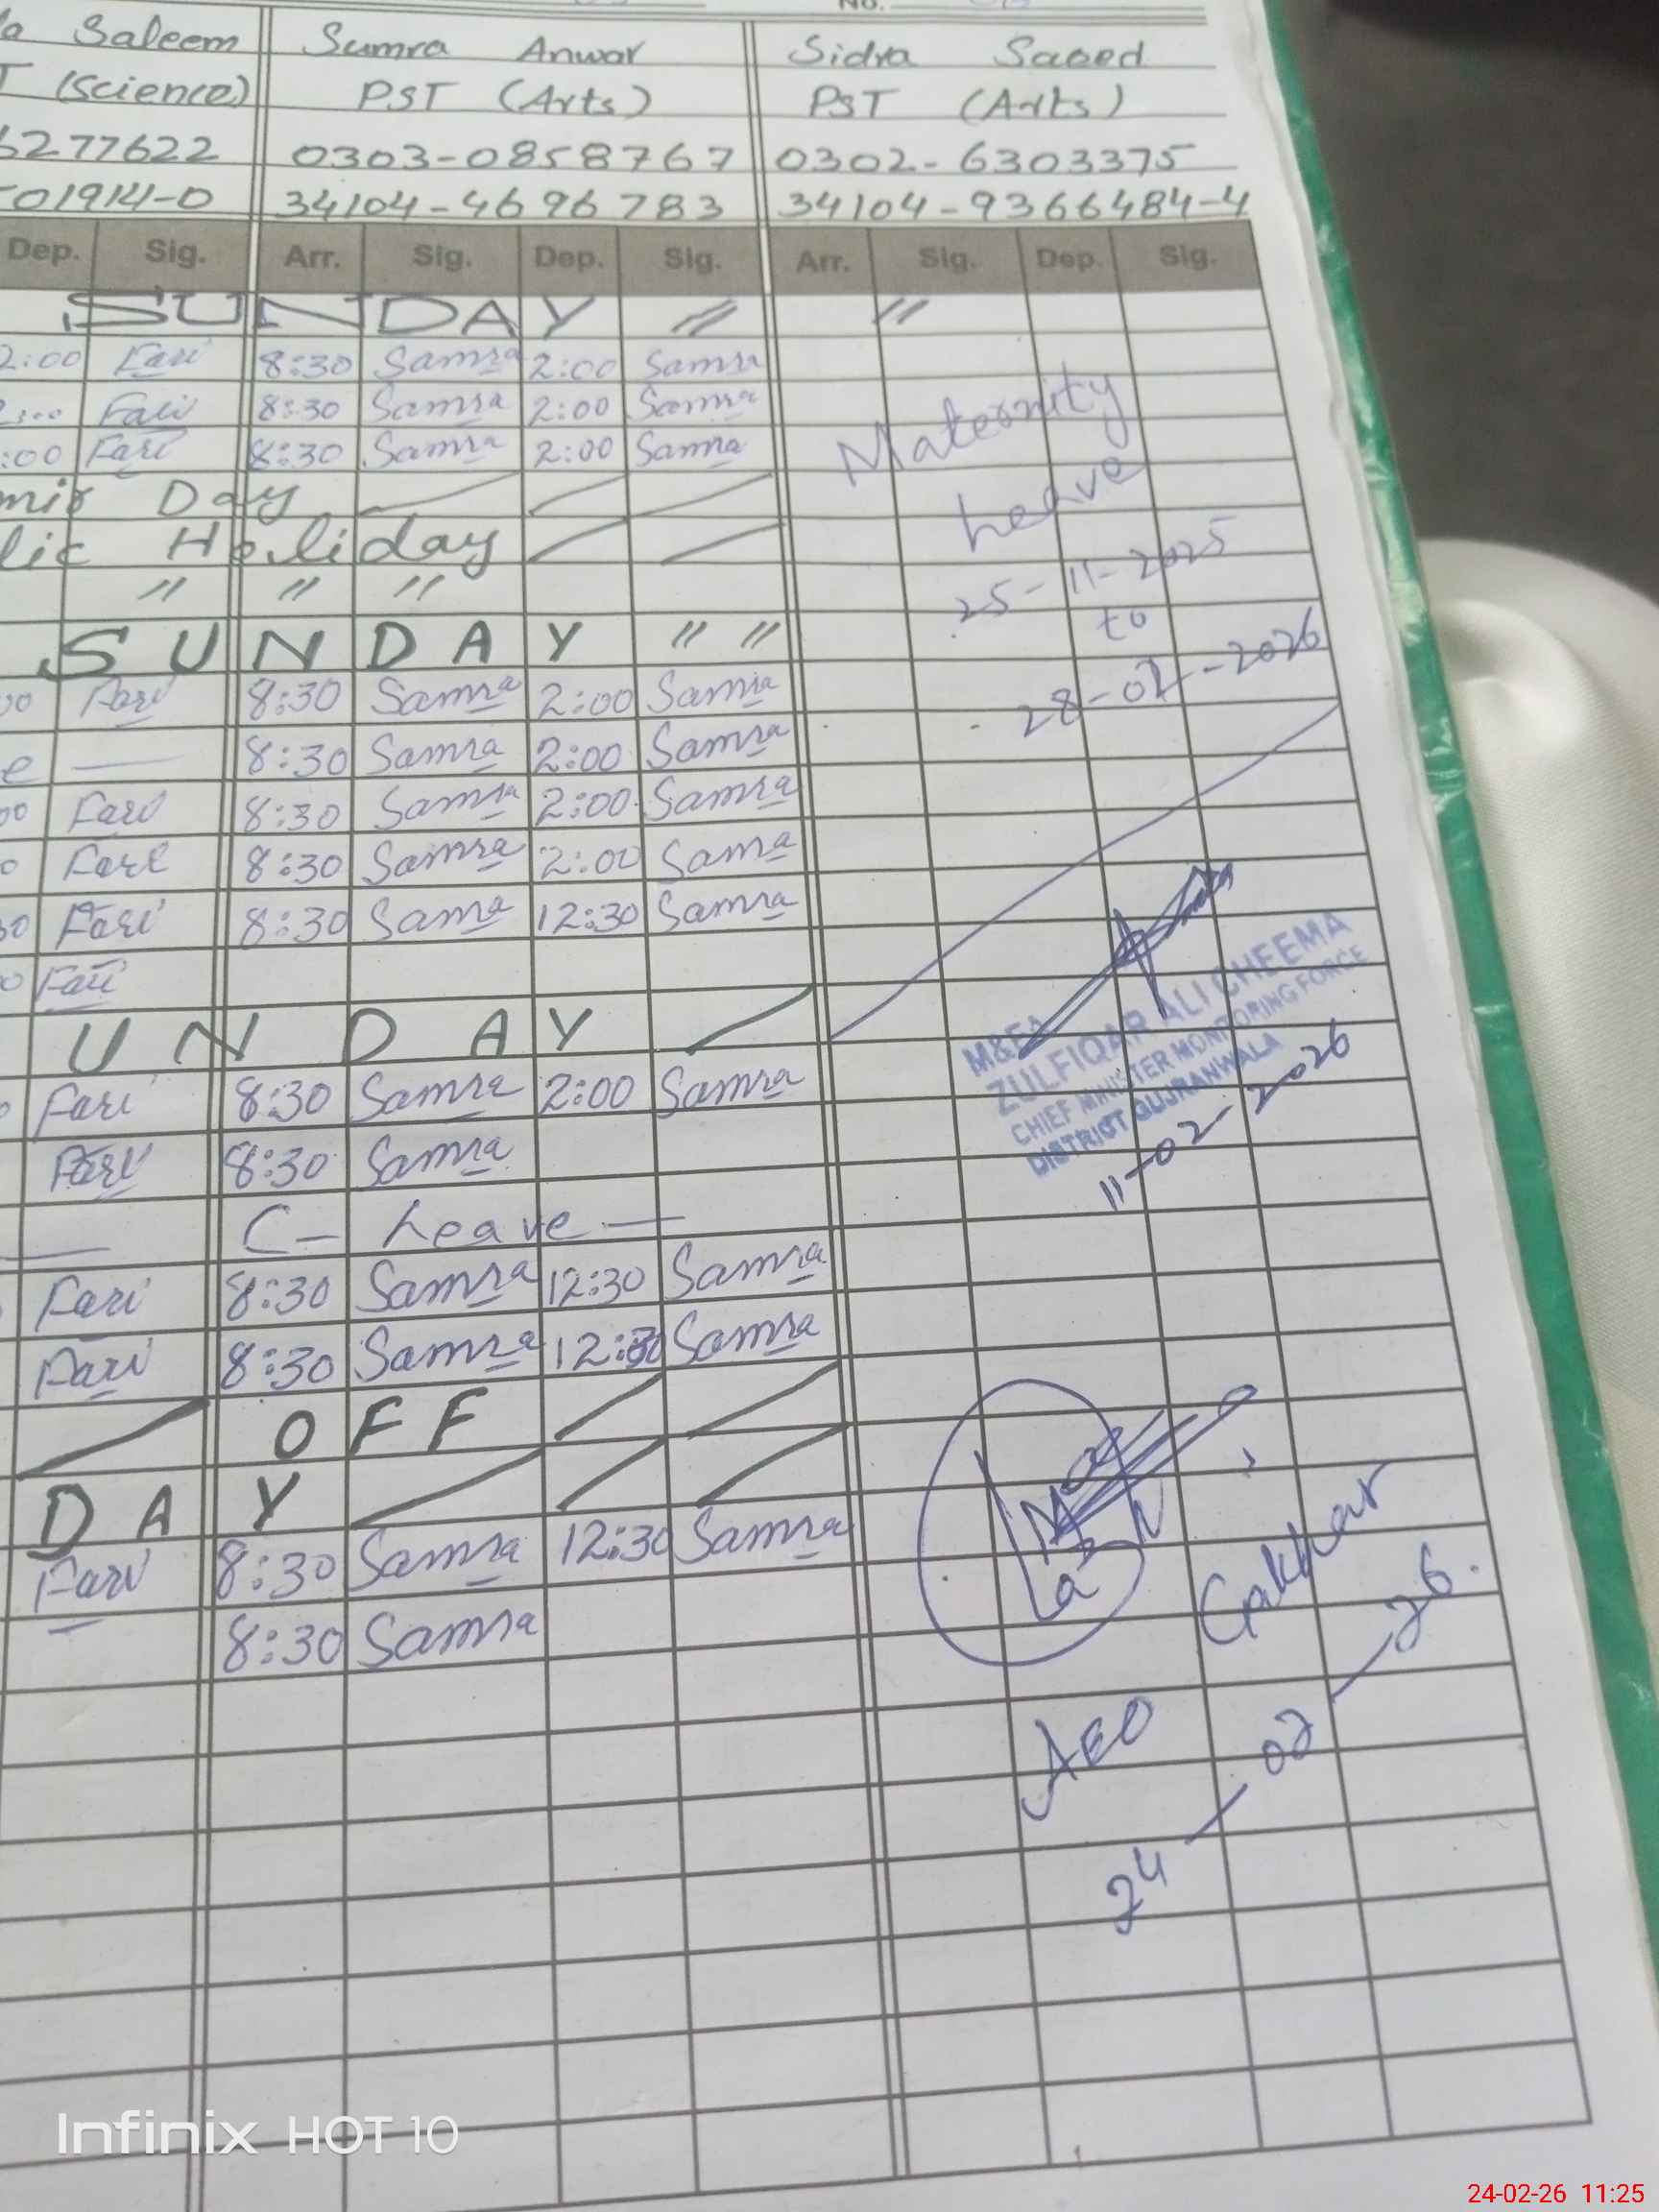 No.
Saleem Sumra Anwar Sidra Saeed
T (Science) PST (Arts) PST (Arts)
6277622 0303-0858767 0302-6303375
01914-0 34104-4696783 34104-9366484-4
Dep. Sig. Arr. Sig. Dep. Sig. Arr. Sig. Dep. Sig.
SUNDAY " "
2:00 Fari 8:30 Samra 2:00 Samra
Fari 8:30 Samra 2:00 Samra
:00 Fari 8:30 Samra 2:00 Samra
Maternity
leave
25-11-2025
to
28-02-2026
mir Day
lic Holiday
" " "
SUNDAY " "
00 Fari 8:30 Samra 2:00 Samra
e — 8:30 Samra 2:00 Samra
00 Fari 8:30 Samra 2:00 Samra
0 Fari 8:30 Samra 2:00 Samra
30 Fari 8:30 Samra 12:30 Samra
0 Fari
UNDAY
Fari 8:30 Samra 2:00 Samra
Fari 8:30 Samra
M&EA
ZULFIQAR ALI CHEEMA
CHIEF MINISTER MONITORING FORCE
DISTRICT GUJRANWALA
11-02-2026
— C- Leave —
Fari 8:30 Samra 12:30 Samra
Fari 8:30 Samra 12:30 Samra
OFF
DAY
Fari 8:30 Samra 12:30 Samra
8:30 Samra
Gakhar
AEO
24-02-26.
Infinix HOT 10
24-02-26 11:25